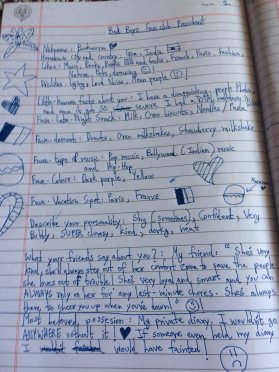 Book Boyz Fan club President
Nickname: Bookworm
Hometown City and country: Goa, India
Likes: Music, Books, Paris, France, Paris, Fashion,
Nature, Pets, dancing
Dislikes: Lying, Loud Noise, Mean people
Little-Known facts about you: I have a disappointing people
and once I got SO severe, I had a
Fave: Late-Night Snack: Milk, Oreo biscuits, Noodles
Fave: dessert: Donuts, Oreo milkshakes, Strawberry milkshake
Fave: Type of music: Pop music, Bollywood (Indian) music
and Hip-Hop
Fave: Colour: Dark purple, Yellow
Fave: Vacation Spot: Paris, France
Describe your personality: Shy (sometimes), Confident, Very
Bubbly, SUPER clumsy, kind, dorky, neat
What your friends say about you?: My friend: "She's very
kind, she'll always step out of her comfort zone to save the people
she loves out of trouble! She's very loyal and smart and you can
ALWAYS rely on her for any last-minute chores. She's always
there to cheer you up when you're down"
Most beloved possession: My private diary. I wouldn't go
ANYWHERE without it! If someone even held my diary
I would have fainted!